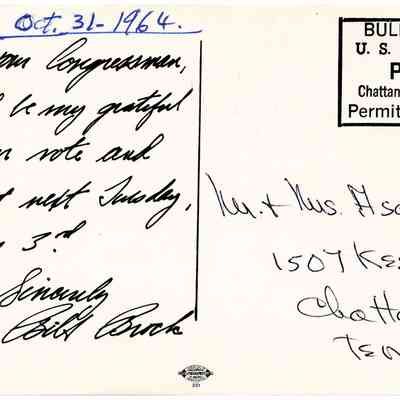 Oct. 31-1964.
your Congressman,
be my grateful
vote and
next Tuesday,
3rd
Sincerely
Bill Brock
BUL
U. S.
P
Chattan
Permit
Mr. + Mrs.
1507
Chatta
Ten